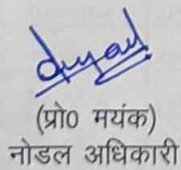 (प्रो० मयंक)
नोडल अधिकारी